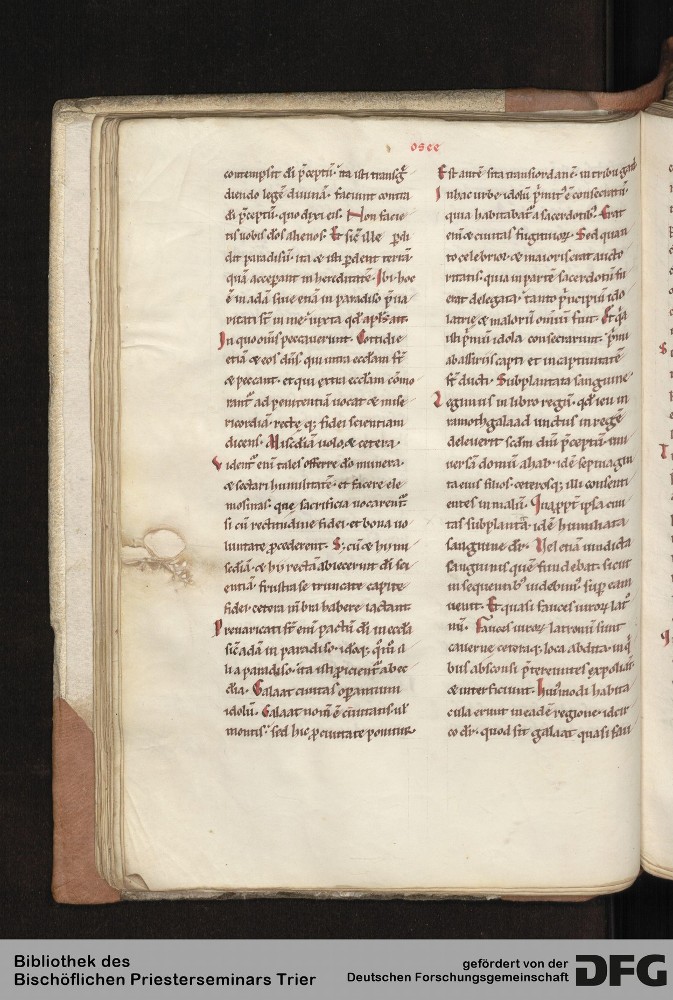 OSEE
contempsit di p̄ceptū· ita isti transg̃
diendo legē diuinā· faciunt contra
di p̄ceptū· quo dixi eis· Non facie
tis uobis d̄os alienos· Et sic̄ ille p̱di
dit paradisū· ita & isti p̱dent terrā
quā accep̱ant in hereditatē· Ibi· hoc
ē in adā siue etiā in paradiso p̄ua
ricati s̄t in me· iuxta qd̄ apl̄s ait·
In quo om̄s peccauerunt· Cottidie
etiā & eos dn̄s qui intra eccl̄am s̄t
& peccant· et qui extra eccl̄am cōmo
rant᷒ ad penitentiā uocat & mise
ricordiā· recte q; fidei scientiam
dicens· Misc̄diā uolo· & cetera·
Vident᷒ eni tales offerre d̄o munera·
& sectari humilitatē· et facere ele
mosinas· que sacrificia uocarent᷒
si cū rectitudine fidei· et bona uo
luntate p̱cederent· S; cū & hi mi
sc̄diā & hi rectā abiecerunt di sci
entiā· frustra se truncate capite
fidei· cetera mēbra habere iactant·
Preuaricati s̄t eni pactū di in eccl̄a
sic̄ adā in paradiso· idoq; q̄m̄ il
li a paradiso· ita isti p̱icient᷒ ab ec
cl̄ia· Galaat ciuitas op̱antium
idolū· Galaat nom̄ ē ciuitatis· ul̄
montis· sed hic p̱ ciuitate ponitur·
Est autē sita trans iordanē· in tribu gad
In hac urbe· idolū p̄mit᷒ ē consecratū·
quia habitabat᷒ a sacerdotib᷒· Erat
eni & ciuitas fugitiuoꝝ· Sed quan
to celebrior· & maioris erat aucto
ritatis· quia in partē sacerdotū fu
erat delegata· tanto p̄ncipiū ido
latrie & malorū om̄iū fuit· Et q̄a
isti p̄mi idola consecrarunt· p̄mi
ab assiriis capti· et in captiuitatē
s̄t ducti· Subplantata sanguine·
Legimus in libro regū· qd̄ ieu in
ramothgalaad unctus in regē
deleuerit sc̄dm d̄ni p̄ceptū· uni
uersā domū ahab· idē septuagin
ta eius filios· ceterosq; illi consenti
entes in malū· Inapp̱t ipsa ciui
tas subplantā· idē humiliata
sanguine dr̄· Uel etiā uindicta
sanguinis quē fundebat· sicut
in sequentib᷒ uidebim᷒· sup̱ eam
uenit· Et quasi fauces uiroꝝ lat᷒
nū· Fauces uiroꝝ latronū sunt
cauerne ceteraq; loca abdita· in q̄
bus absconsi p̄tereuntes expoliant·
& interficiunt· Hui᷒modi habita
cula erunt in eadē regione· idcir
co dr̄· quod sit galaat quasi fau
Bibliothek des
Bischöflichen Priesterseminars Trier
gefördert von der
Deutschen Forschungsgemeinschaft
DFG